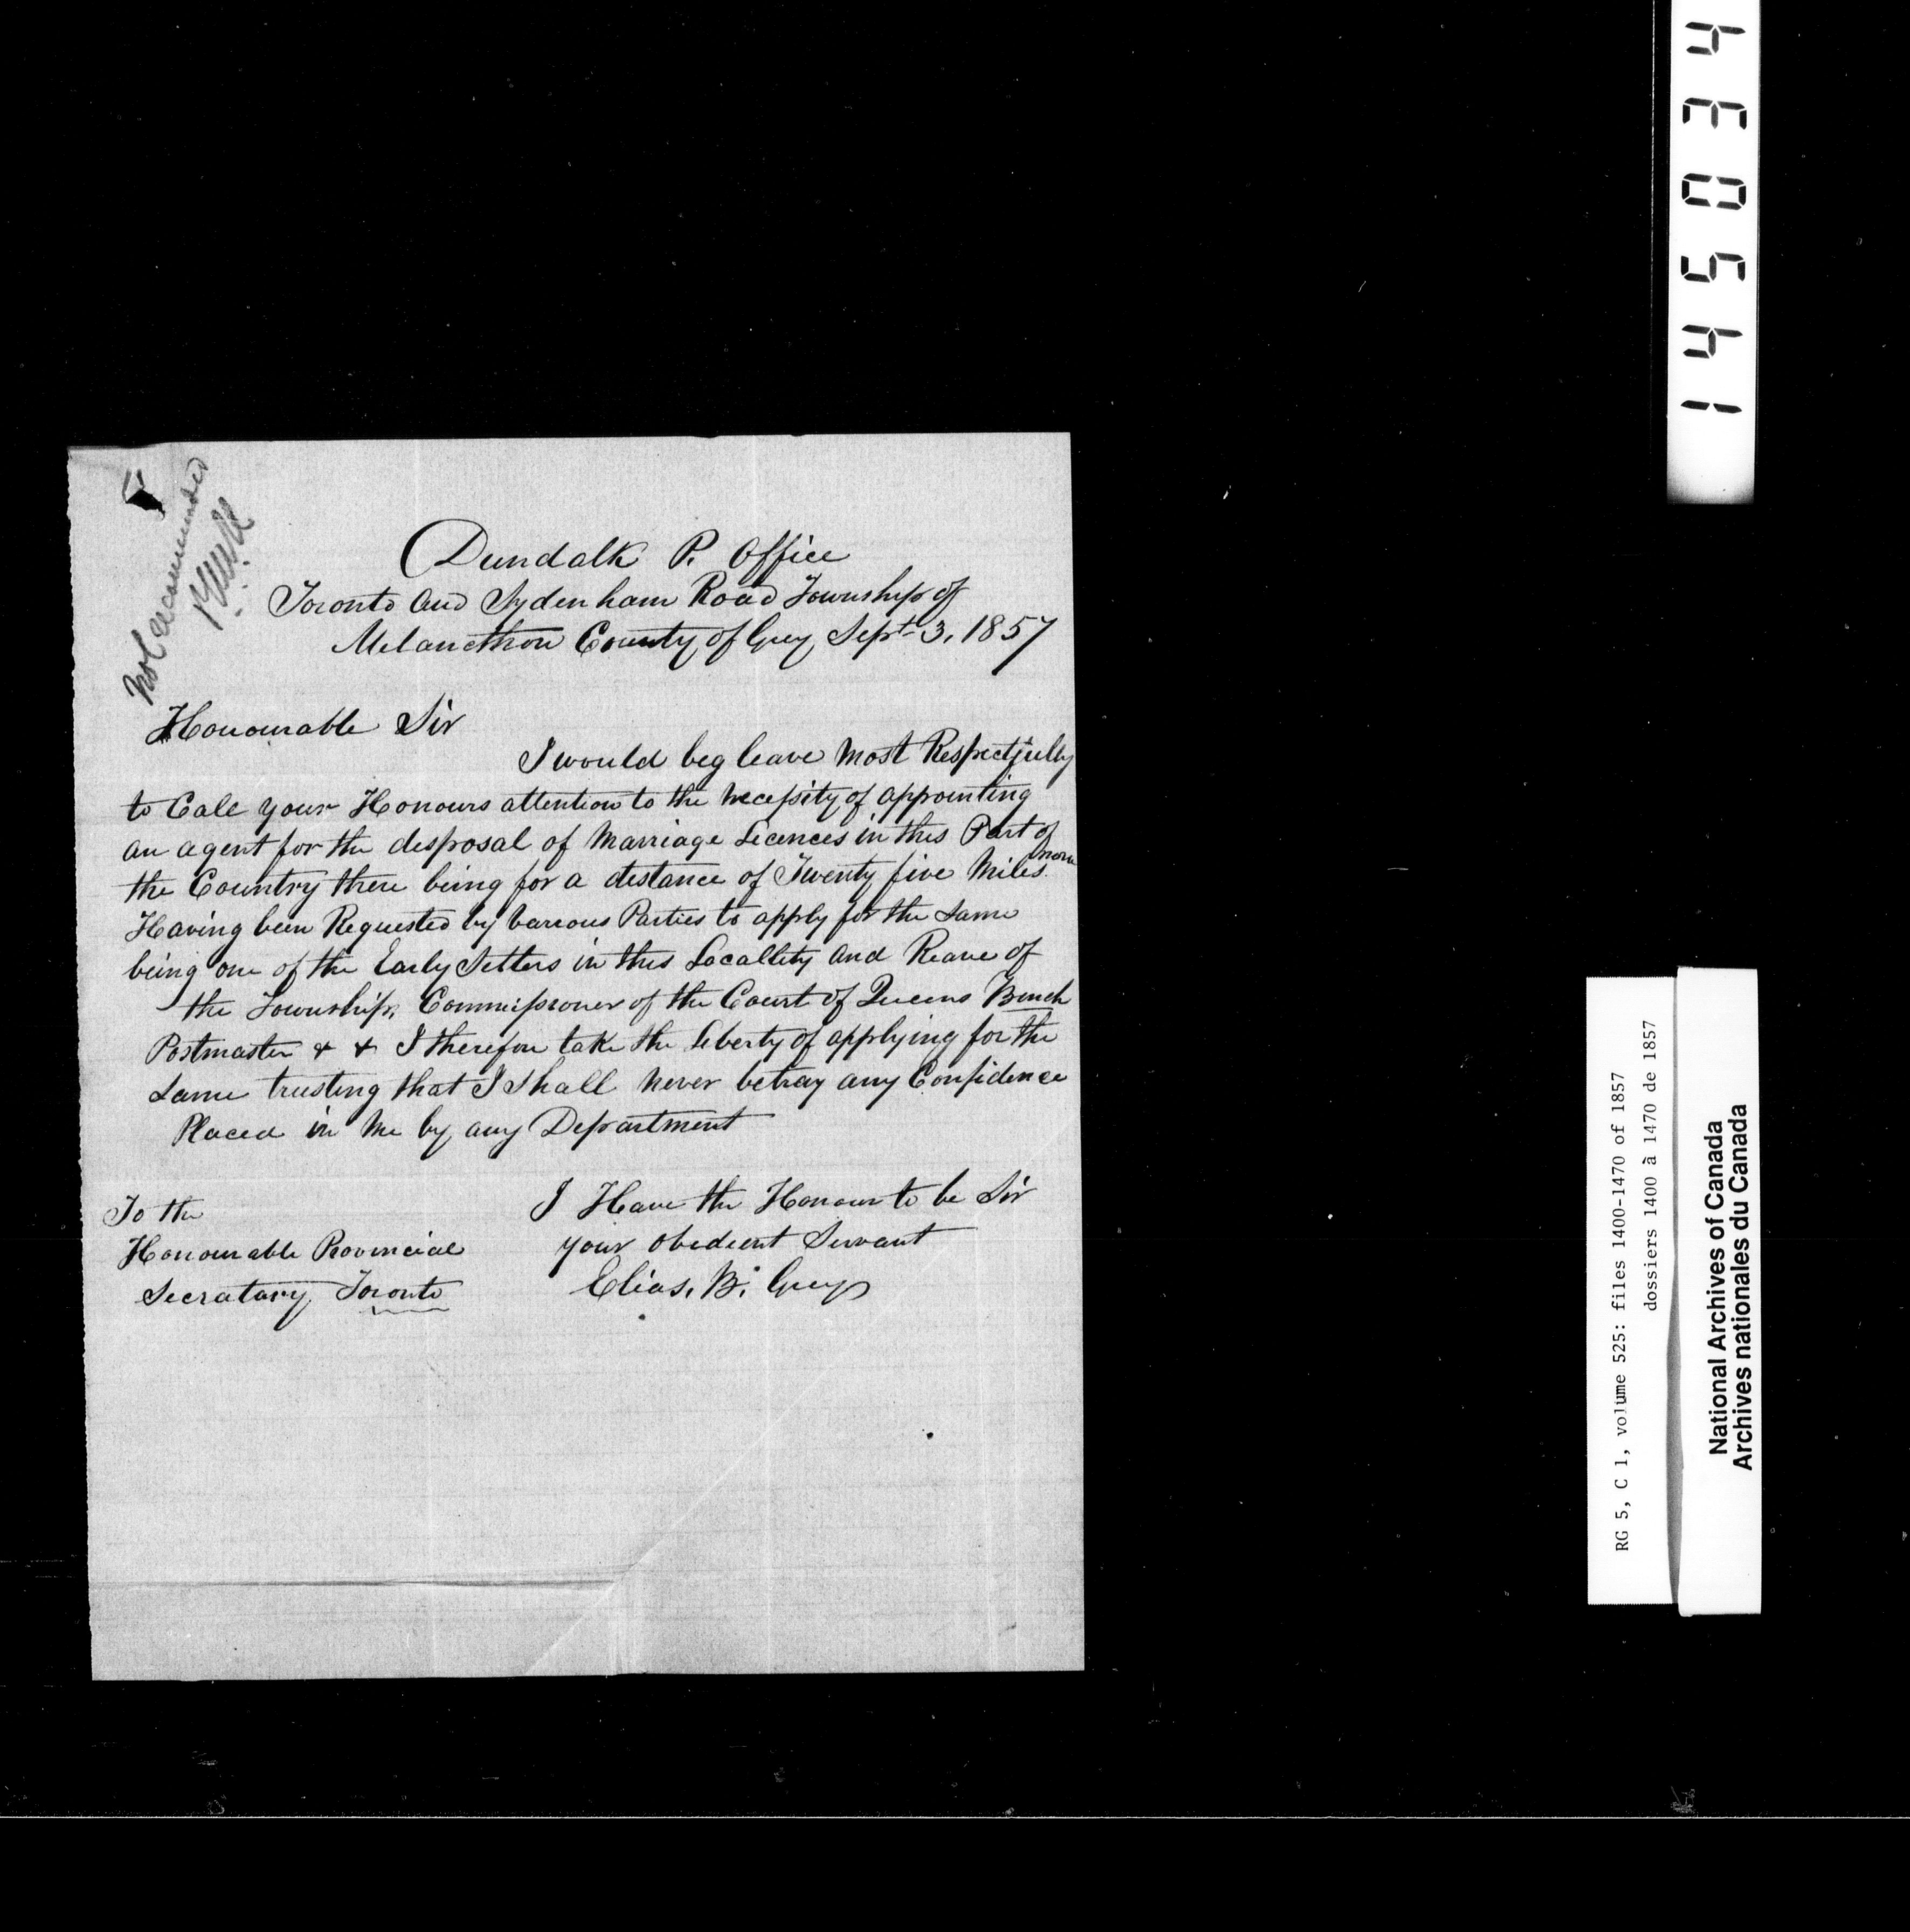 not recommended
Dundalk P. Office
Toronto and Sydenham Road Township of
Melancthon County of Grey Sept 3, 1857
Honourable Sir
I would beg leave most Respectfully
to Call your Honours attention to the necessity of appointing
an agent for the disposal of Marriage Licences in this Part of
the Country there being for a distance of Twenty five Miles none
Having been Requested by various Parties to apply for the Same
being one of the Early Setlers in this Locallity and Reave of
the Township, Commissioner of the Court of Queens Bench
Postmaster & & I therefore take the liberty of applying for the
Same trusting that I Shall never betray any Confidence
Placed in Me by any Department
I Have the Honour to be Sir
your obedient Servant
Elias. B. Grey
To the
Honourable Provincial
Secratary, Toronto
145034
RG 5, C 1, volume 525: files 1400-1470 of 1857
dossiers 1400 à 1470 de 1857
National Archives of Canada
Archives nationales du Canada